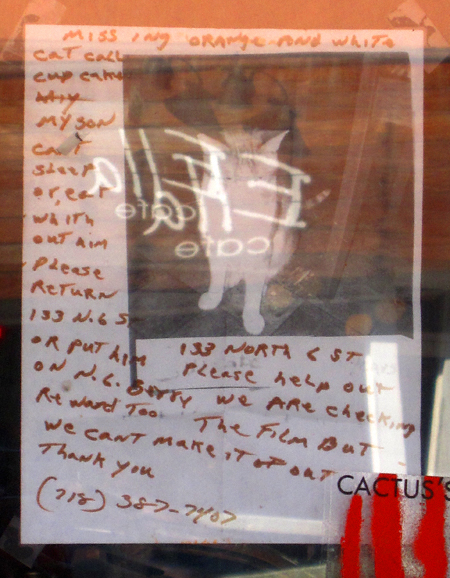 MISSING ORANGE AND WHITE
CAT CALL
CUPCAKE
WHY
MY SON
CAN'T
SLEEP
OR, EAT
WHITH
OUT HIM
PLEASE
RETURN
133 N. 6 ST
OR PUT HIM
133 NORTH 6 ST
ON N. 6.
PLEASE HELP OUT
REWARD TOO
WE ARE CHECKING
THE FILM BUT
WE CANT MAKE IT OUT
THANK YOU
(718) 387-7407
Ella
cafe
Ella
cafe
CACTUS'S